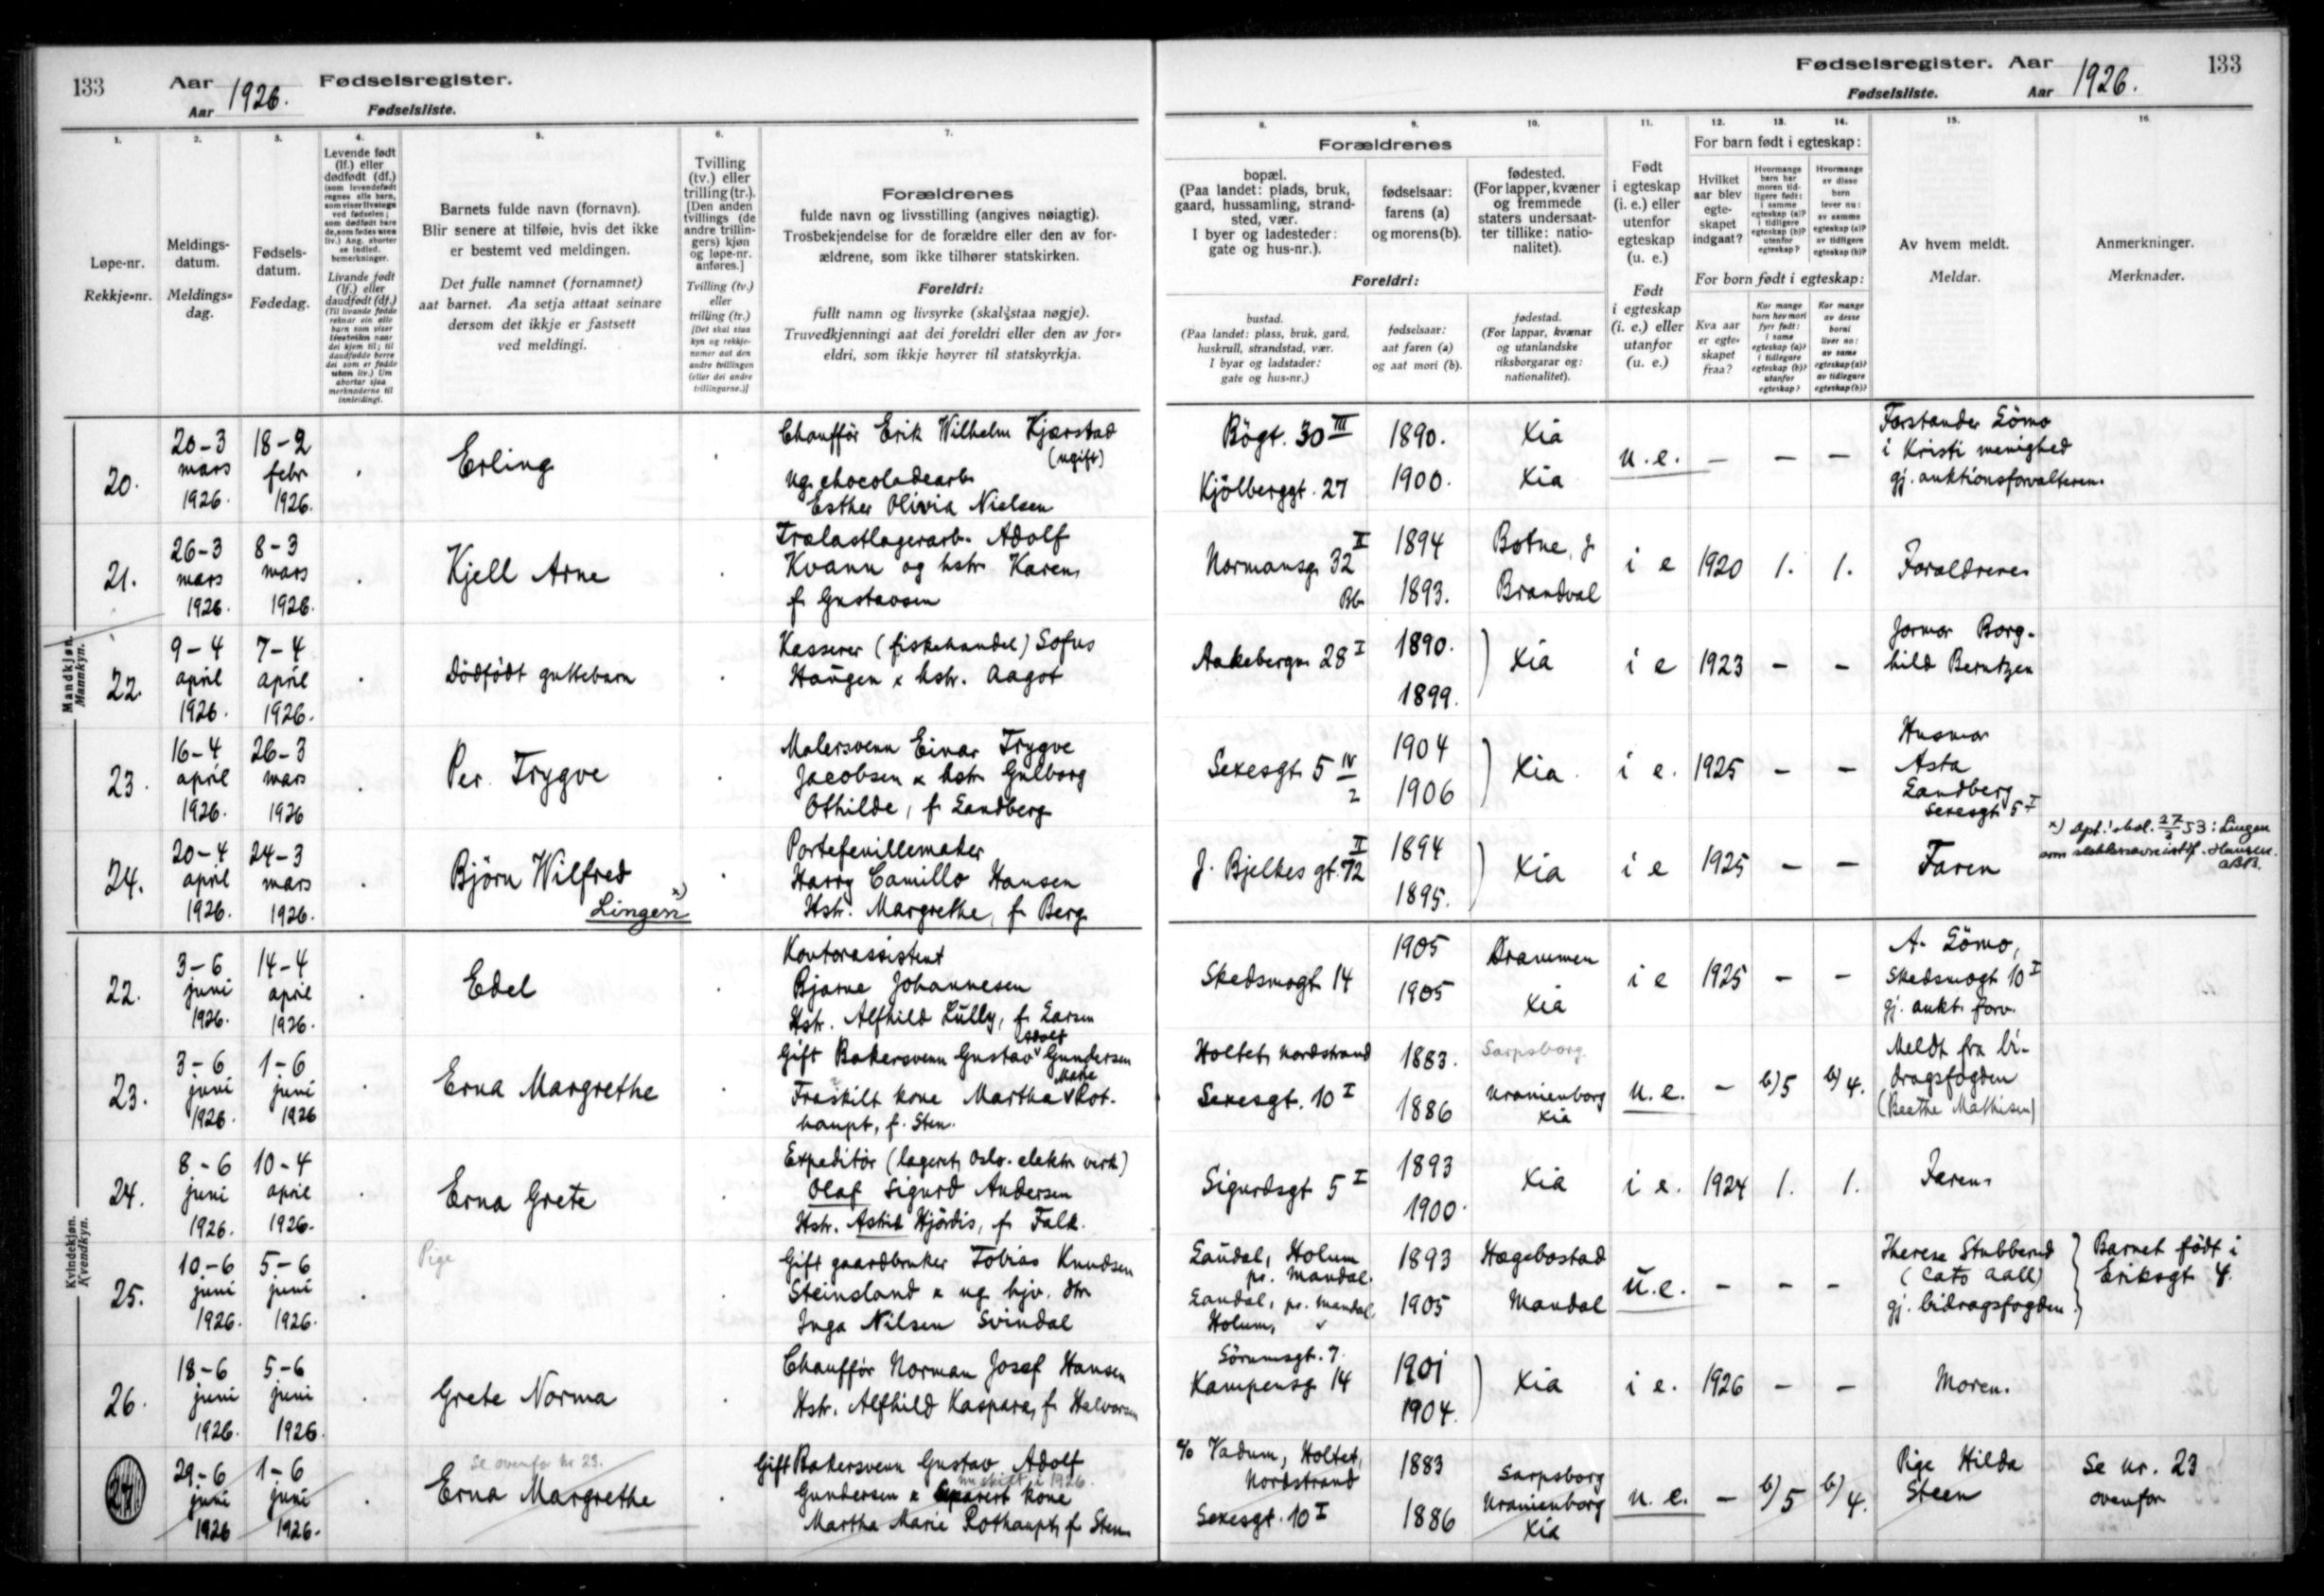 133
Aar 1926. Fødselsregister.
Aar Fødselsliste.
Fødselsregister. Aar 1926. 133
Fødselsliste. Aar
1. 2. 3. 4. 5. 6. 7.
Løpe-nr.
Rekkje-nr.
Meldings-
datum.
Meldings-
dag.
Fødsels-
datum.
Fødedag.
Levende født
(lf.) eller
dødfødt (df.)
(som levendefødt
regnes alle barn,
som viser livstegn
ved fødselen;
som dødfødt bare
de, som fødes uten
liv.) Ang. aborter
se indled.
bemerkninger.
Livande født
(lf.) eller
daudfødt (df.)
(Til livande fødde
reknar ein alle
barn som viser
livsteikn naar
dei kjem til; til
daudfødde berre
dei som er fødde
utan liv.) Um
abortar sjaa
merknaderne til
innleidingi.
Barnets fulde navn (fornavn).
Blir senere at tilføie, hvis det ikke
er bestemt ved meldingen.
Det fulle namnet (fornamnet)
aat barnet. Aa setja attaat seinare
dersom det ikkje er fastsett
ved meldingi.
Tvilling
(tv.) eller
trilling (tr.).
[Den anden
tvillings (de
andre trillin-
gers) kjøn
og løpe-nr.
anføres.]
Tvilling (tv.)
eller
trilling (tr.)
[Det skal staa
kyn og rekkje-
numer aat den
andre tvillingen
(eller dei andre
trillingarne.)]
Forældrenes
fulde navn og livsstilling (angives nøiagtig).
Trosbekjendelse for de forældre eller den av for-
ældrene, som ikke tilhører statskirken.
Foreldri:
fullt namn og livsyrke (skal staa nøgje).
Truvedkjenningi aat dei foreldri eller den av for-
eldri, som ikkje høyrer til statskyrkja.
8. 9. 10. 11. 12. 13. 14. 15. 16.
Forældrenes
bopæl.
(Paa landet: plads, bruk,
gaard, hussamling, strand-
sted, vær.
I byer og ladesteder:
gate og hus-nr.).
fødselsaar:
farens (a)
og morens (b).
fødested.
(For lapper, kvæner
og fremmede
staters undersaat-
ter tillike: natio-
nalitet).
Foreldri:
bustad.
(Paa landet: plass, bruk, gard,
huskrull, strandstad, vær.
I byar og ladstader:
gate og hus-nr.)
fødselsaar:
aat faren (a)
og aat mori (b).
fødestad.
(For lappar, kvænar
og utanlandske
riksborgarar og:
nationalitet).
Født
i egteskap
(i. e.) eller
utenfor
egteskap
(u. e.)
Født
i egteskap
(i. e.) eller
utanfor
(u. e.)
For barn født i egteskap:
Hvilket
aar blev
egte-
skapet
indgaat?
Hvormange
barn har
moren tid-
ligere født:
i samme
egteskap (a)?
i tidligere
egteskap (b)?
utenfor
egteskap?
Hvormange
av disse
barn
lever nu:
av samme
egteskap (a)?
av tidligere
egteskap (b)?
For born født i egteskap:
Kva aar
er egte-
skapet
fraa?
Kor mange
born hev mori
fyrr født:
i same
egteskap (a)?
i tidlegare
egteskap (b)?
utanfor
egteskap?
Kor mange
av desse
borni
liver no:
av same
egteskap (a)?
av tidlegare
egteskap (b)?
Av hvem meldt.
Meldar.
Anmerkninger.
Merknader.
Mandkjøn.
Mannkyn.
20. 20-3 mars 1926. 18-2 febr 1926. Erling
Chaufför Erik Wilhelm Kjærstad
(ugift)
ug. chocoladearb.
Esther Olivia Nielsen
Bögt. 30 III 1890. Xia
Kjölberggt. 27 1900. Xia
u.e. - - -
Forstander Sömo
i Kristi menighed
gj. auktionsforvalteren.
21. 26-3 mars 1926. 8-3 mars 1926. Kjell Arne
Trælastlagerarb. Adolf
Kvann og hstr. Karen
f. Gustavsen
Normansg. 32 II 1894 Botne, J.
Bb. 1893. Brandval
i e 1920 1. 1. Forældrene
22. 9-4 april 1926. 7-4 april 1926. Dödfödt guttebarn
Kasserer (fiskehandel) Sofus
Haugen & hstr. Aagot
Aakebergv. 28 I 1890. 1899. Xia
i e 1923 - -
Jormor Borg-
hild Berntzen
23. 16-4 april 1926. 26-3 mars 1926 Per Trygve
Malersvenn Einar Trygve
Jacobsen & hstr. Gulborg
Othilde, f. Sandberg
Sexesgt. 5 IV/2 1904 1906 Xia
i e. 1925 - -
Husmor
Asta
Sandberg
Sexesgt. 5 I
24. 20-4 april 1926. 24-3 mars 1926. Björn Wilfred
Lingen x)
Portefeuillemaker
Harry Camillo Hansen
Hstr. Margrethe, f. Berg
J. Bjelkes gt. 72 II 1894 1895. Xia
i e 1925 - - Faren
Kvindekjøn.
Kvendkyn.
22. 3-6 juni 1926. 14-4 april 1926. Edel
Kontorassistent
Bjarne Johannesen
Hstr. Alfhild Lully, f. Larsen
Skedsmogt. 14 1905 Drammen
1905 Xia
i e 1925 - -
A. Sömo,
Skedsmogt. 10 I
gj. aukt. forv.
23. 3-6 juni 1926. 1-6 juni 1926 Erna Margrethe
Gift Bakersvenn Gustav Adolf Gundersen
Fraskilt kone Martha Marie Rot-
haupt, f. Sten.
Holtet, Nordstrand 1883. Sarpsborg
Sexesgt. 10 I 1886 Uranienborg Xia
u.e. - b) 5 b) 4.
Meldt fra bi-
dragsfogden
(Beethe Mathisen)
24. 8-6 juni 1926. 10-4 april 1926. Erna Grete
Expeditör (lageret, Oslo elektr. verk)
Olaf Sigurd Andersen
Hstr. Astrid Hjördis, f. Falk.
Sigurdsgt. 5 I 1893 1900. Xia
i e. 1924 1. 1. Faren
25. 10-6 juni 1926. 5-6 juni 1926. Pige
Gift gaardbruker Tobias Knudsen
Steinsland & ug. hjv. dtr.
Inga Nilsen Svindal
Laudal, Holum
pr. Mandal. 1893 Hægebostad
Laudal, pr. Mandal
Holum, 1905 Mandal
u.e. - - -
Therese Stubberud
(Cato Aall)
gj. bidragsfogden.
Barnet födt i
Eriksgt. 4.
26. 18-6 juni 1926. 5-6 juni 1926. Grete Norma
Chaufför Norman Josef Hansen
Hstr. Alfhild Kaspara, f. Halvorsen
Sörumsgt. 7.
Kampensg. 14 1901 1904. Xia
i e. 1926 - - Moren.
27 29-6 juni 1926 1-6 juni 1926.
Se ovenfor nr 23.
Erna Margrethe
Gift Bakersvenn Gustav Adolf
Gundersen & kone
Martha Marie Rothaupt, f. Steen
c/o Vadum, Holtet,
Nordstrand 1883 Sarpsborg
Sexesgt. 10 I 1886 Uranienborg Xia
u.e. - b) 5 b) 4.
Pige Hilda
Steen
Se nr. 23
ovenfor